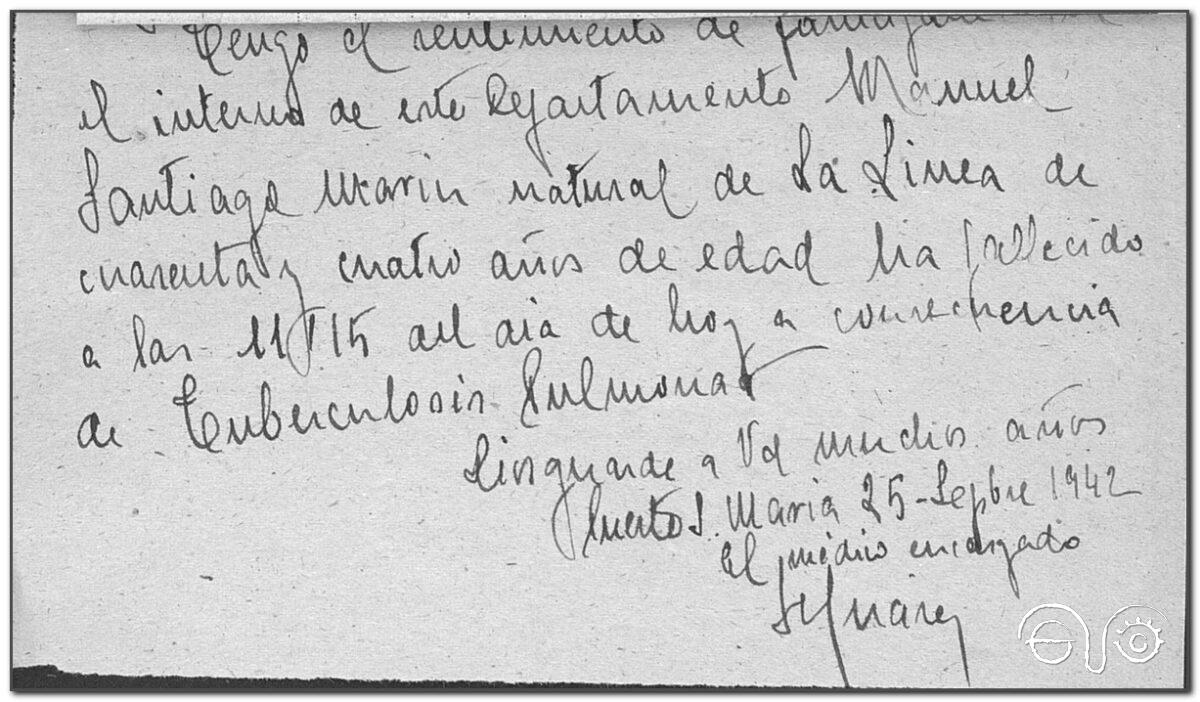 Tengo el sentimiento de
el interno de este Departamento Manuel
Santiago Marin natural de La Linea de
cuarenta y cuatro años de edad ha fallecido
a las 11 15 del dia de hoy a consecuencia
de Tuberculosis Pulmonar
Dios guarde a Vd muchos años
Puerto S. Maria 25-Sepbre 1942
El médico encargado